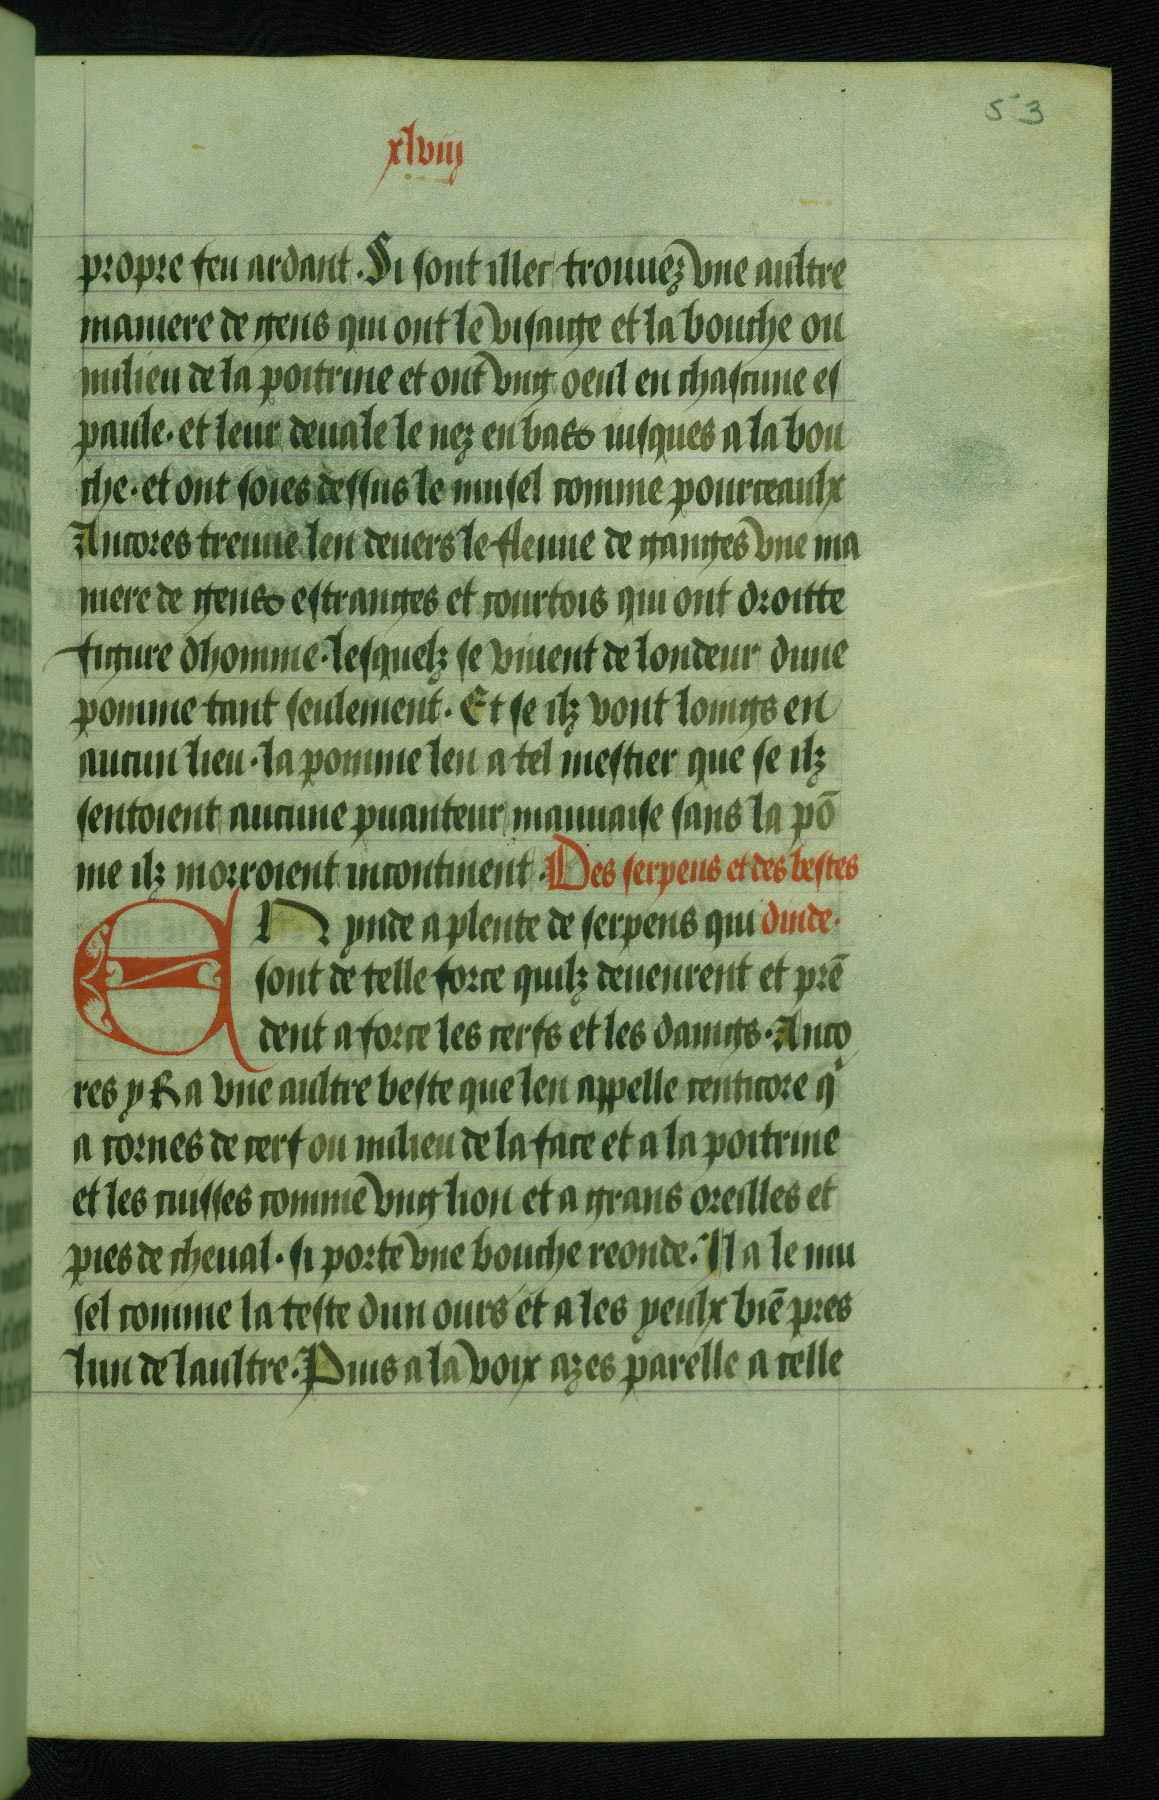 53
xlviij
propre feu ardant. Si sont illec trouuez vne aultre
maniere de gens qui ont le visaige et la bouche ou
milieu de la poitrine et ont vng oeul en chascune es
paule. et leur deuale le nez en bas iusques a la bou
che. et ont soies dessus le musel comme pourceaulx
Ancores treuue len deuers le fleuue de ganges vne ma
niere de gens estranges et courtois qui ont droitte
figure dhomme. lesquelz se viuent de londeur dune
pomme tant seulement. Et se ilz vont loings en
aucun lieu. la pomme leu a tel mestier que se ilz
sentoient aucune puanteur mauuaise sans la pō
me ilz morroient incontinent. Des serpens et des bestes
EN ynde a plente de serpens qui dinde.
sont de telle force quilz deueurent et prē
dent a force les cerfs et les daings. Anco
res y Ra vne aultre beste que len appelle centicore q
a cornes de cerf ou milieu de la face et a la poitrine
et les cuisses comme vng lion et a grans oreilles et
pies de cheual. si porte vne bouche reonde. Il a le mu
sel comme la teste dun ours et a les yeulx biē pres
lun de laultre. Puis a la voix azes parelle a celle